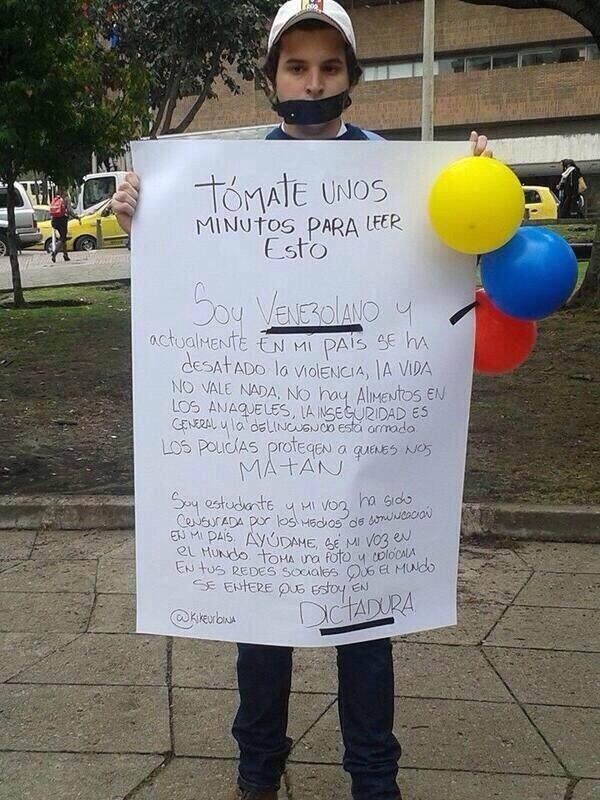 TÓMATE UNOS
MINUTOS PARA LEER
ESTO
Soy VENEZOLANO y
actualmente EN MI PAÍS SE HA
DESATADO LA VIOLENCIA, LA VIDA
NO VALE NADA, NO hay ALIMENTOS EN
LOS ANAQUELES, LA INSEGURIDAD ES
GENERAL y la DELINCUENCIA ESTÁ ARMADA.
LOS POLICÍAS PROTEGEN A QUIENES NOS
MATAN
Soy ESTUDIANTE y MI VOZ ha sido
CENSURADA POR LOS MEDIOS DE COMUNICACIÓN
EN MI PAÍS. AYÚDAME, SÉ MI VOZ EN
EL MUNDO TOMA UNA FOTO y COLÓCALA
EN TUS REDES SOCIALES QUE EL MUNDO
SE ENTERE QUE ESTOY EN
DICTADURA
@KIKEURBINA